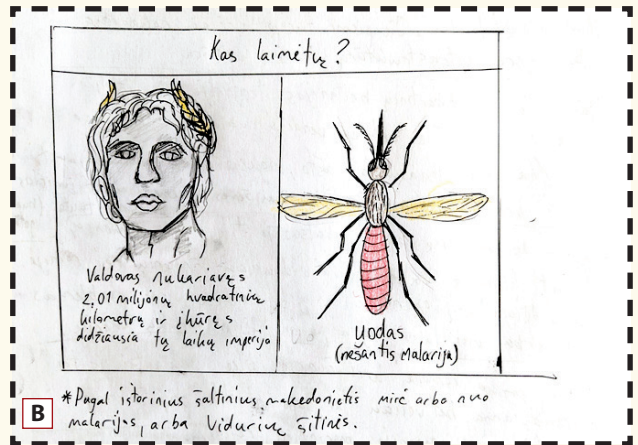 Kas laimėtų?
Valdovas nukariavęs
2,01 milijonų kvadratinių
kilometrų ir įkūręs
didžiausia tų laikų imperija
Uodas
(nešantis malariją)
*Pagal istorinius šaltinius makedonietis mirė arba nuo
maliarijos, arba Vidurių šiltinės.
B